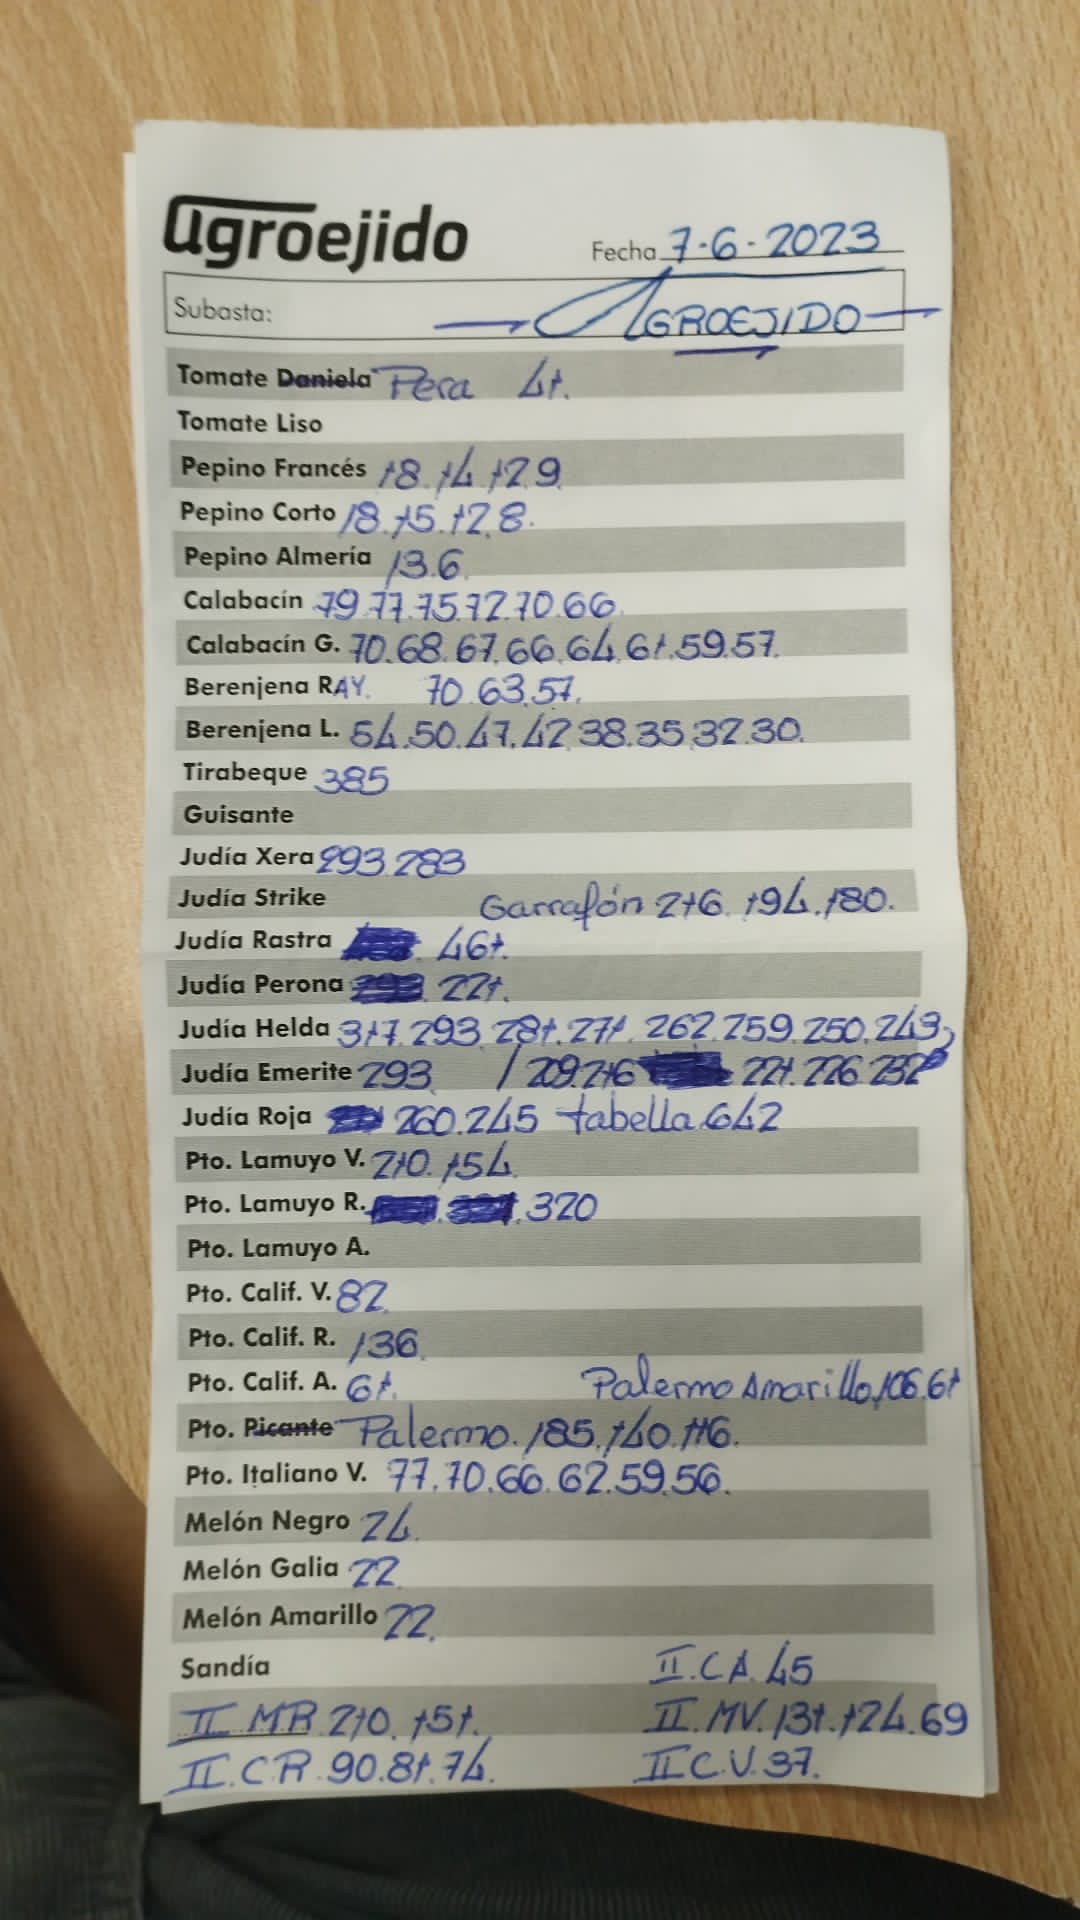 agroejido
Fecha 7-6-2023
Subasta: AGROEJIDO
Tomate Daniela Pera 41.
Tomate Liso
Pepino Francés 18.14.12.9
Pepino Corto 18.15.12.8.
Pepino Almería 13.6.
Calabacín 79.77.75.72.70.66.
Calabacín G. 70.68.67.66.64.61.59.57.
Berenjena RAY. 70.63.57.
Berenjena L. 54.50.47.42.38.35.32.30.
Tirabeque 385
Guisante
Judía Xera 293.283
Judía Strike Garrafón 216.194.180.
Judía Rastra 461.
Judía Perona 221.
Judía Helda 317.293.281.271.262.259.250.243
Judía Emerite 293. / 209.216 221.226.232
Judía Roja 260.245 tabella.642
Pto. Lamuyo V. 210.154.
Pto. Lamuyo R. 320
Pto. Lamuyo A.
Pto. Calif. V. 82.
Pto. Calif. R. 136.
Pto. Calif. A. 61. Palermo Amarillo.106.61
Pto. Picante Palermo.185.140.116.
Pto. Italiano V. 77.70.66.62.59.56.
Melón Negro 24.
Melón Galia 22.
Melón Amarillo 22.
Sandía II.CA.45
II MR 210.151. II.MV.131.124.69
II.CR.90.81.74. II C.V.37.